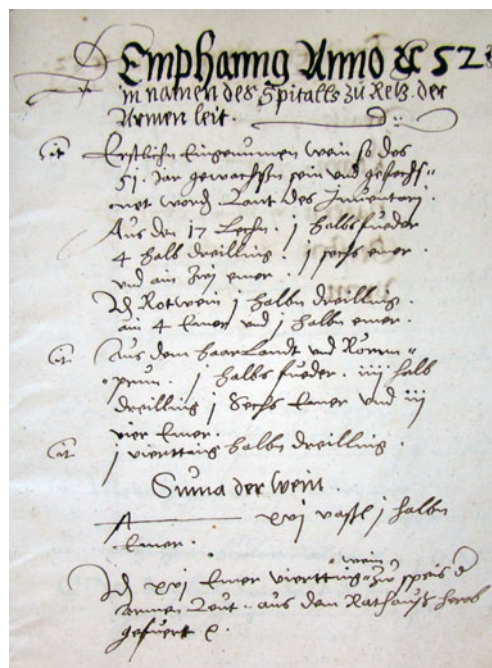 Emphanng Anno &c 52
in namen des Spitalls zu Retz der
Armen leit.
it Erstlichn Eingenummen wein so des
51. Jar gewachssn sein und gefechs-
net wordn Laut des Inuentarj
Aus den 17 Lechn. j halbs fueder
4 halb dreilling. j sechs emer.
und ain Zwj emer.
Id Rotwein j halbn dreilling.
ain 4 Emer und j halbn emer.
it Aus dem haarlandt und Rorrn-
prun. j halbs fueder. iiij halb
dreilling j Sechs Emer und iij
vier Emer.
it j vierttaig halbn dreilling.
Suma der wein.
xvj vassl j halbn
Emer.
Id xvj Emer vierttaig wein zu speis d
armen Leut aus dem Rathauss herab
gefuert &c.